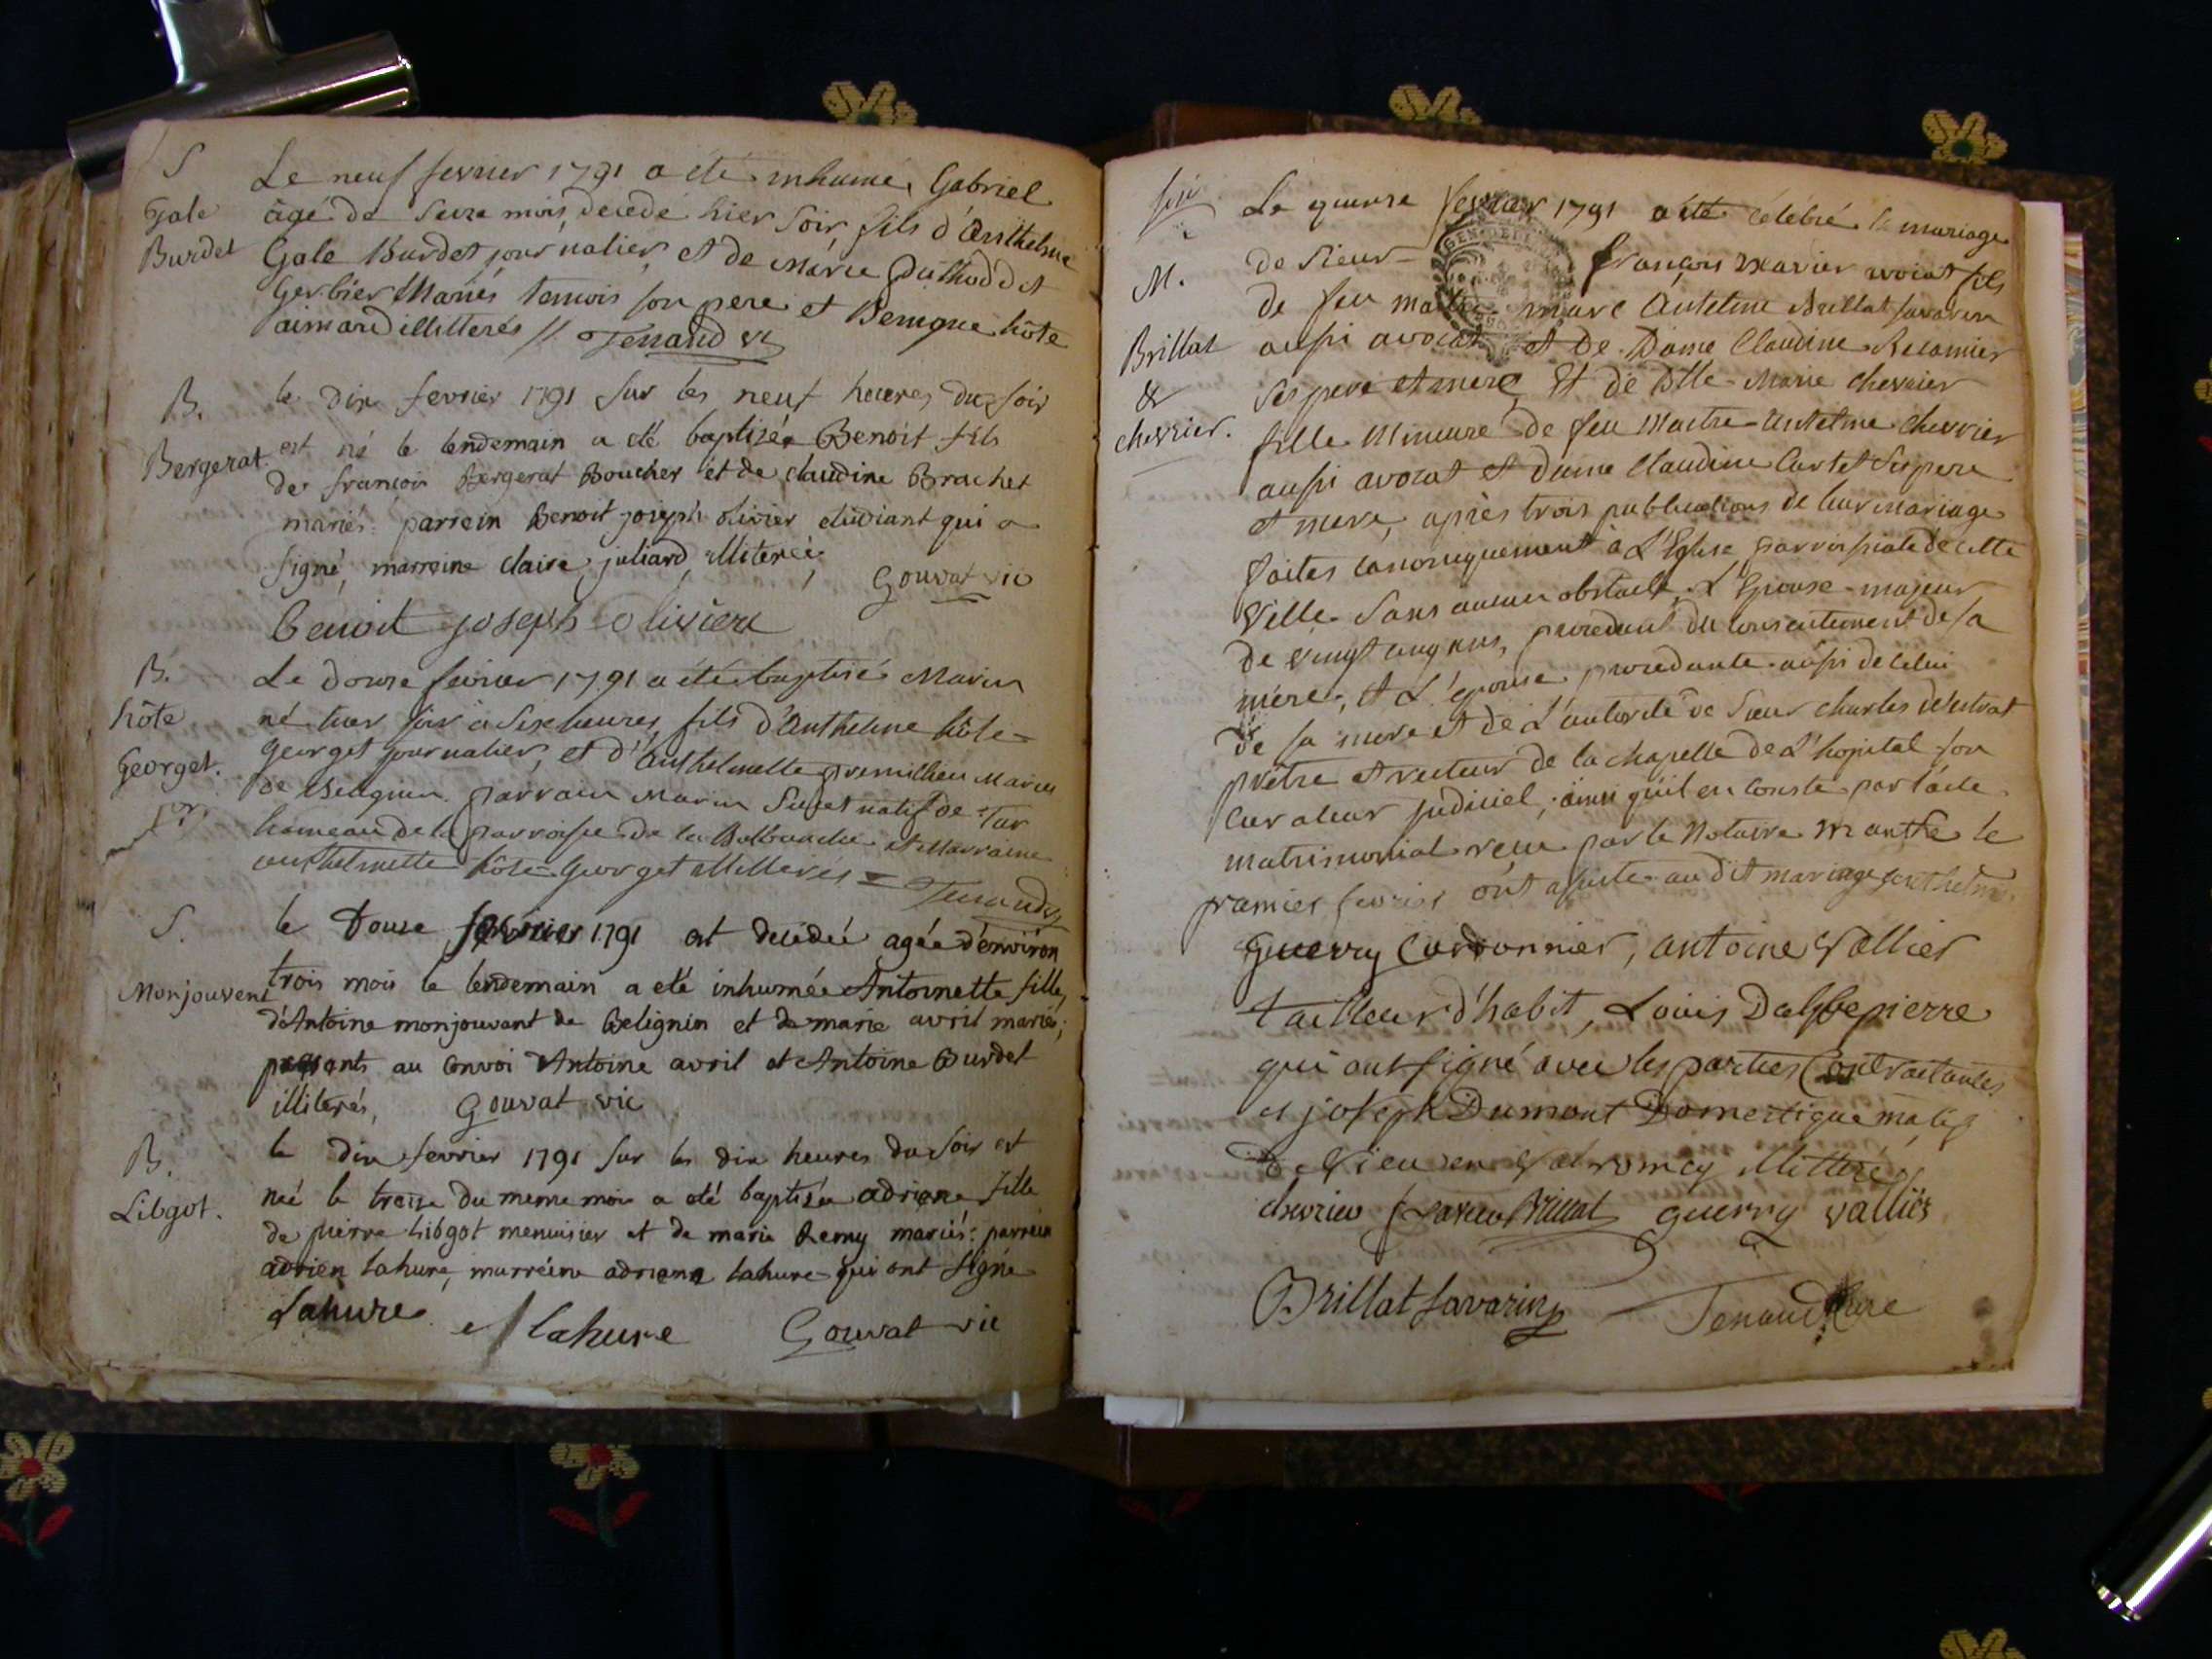 S
Gale
Burdet
Le neuf fevrier 1791 a été inhumé Gabriel
âgé de Seize mois, decedé hier soir, fils d'Anthelme
Gale Burdet journalier, et de Marie
Gerbier Mariés temois son pere et Benigne hôte
aimard illitterés // Tenand vic
B.
Bergerat
le dix fevrier 1791 sur les neuf heures du soir
est né le lendemain a eté baptisée Benoit fils
de françois Bergerat Boucher et de claudine Brachet
mariés: parrein Benoit joseph olivier etudiant qui a
signé, marreine claire juliard, illiterée,
Gouvat vic
Benoit joseph olivier
B.
hôte
Georget.
Le douze fevrier 1791 a été baptisé Marin
né hier soir à six heures, fils d'Anthelme hôte =
Georget journalier, et d'Anthelmette premillieu Mariés
de Belignin. parrain Marin natif de
hameau de la parroisse de la Balbuache et Marraine
anthelmette hôte = Georget illitterés = Tenand vic
S.
Monjouvent
le Douze fevrier 1791 est decédée agée d'environ
trois mois le lendemain a eté inhumée Antoinette fille
d'Antoine monjouvant de Belignin et de marie avril mariés;
presents au convoi Antoine avril et Antoine Burdet
illiterés, Gouvat vic
B.
Libgot.
le dix fevrier 1791 sur les dix heures du soir est
neé le treize du meme mois a eté baptisée adriene fille
de pierre Libgot menuisier et de marie Remy mariés: parrein
adrien lahure, marreine adriene lahure qui ont signé
Lahure lahure Gouvat vic
M.
Brillat
&
chevrier.
Le quinze fevrier 1791 a été célébré le mariage
de Sieur françois xavier avocat fils
de feu maitre marc Antelme Brillat savarin
aussi avocat et de Dame Claudine Recamier
ses pere et mere, Et de Dlle Marie chevrier
fille Mineure de feu Maitre Antelme chevrier
aussi avocat et dame Claudine Cartet ses pere
et mere, après trois publications de leur Mariage
faites canoniquement à L'Eglise parroissiale de cette
Ville sans aucun obstacle, L'Epouse majeur
de vingt cinq ans, procedant du consentement de sa
mere, et L'épouse procedante aussi de celui
de sa mere et de L'autorité de Sieur charles
prêtre et recteur de la chapelle de L'hopital son
curateur judiciel, ainsi qu'il en conste par l'acte
matrimonial reçu par le Notaire Manthe le
premier fevrier ont assisté audit mariage anthelme
Guerry Cordonnier, antoine Vallier
tailleur d'habit, Louis Dallepierre
qui ont signé avec les parties Contractantes
et joseph Dumont Domestique natif
de Vieu en Valromey illitteré
chevrier f xavier Brillat guerry vallier
Brillat Savarin Tenand